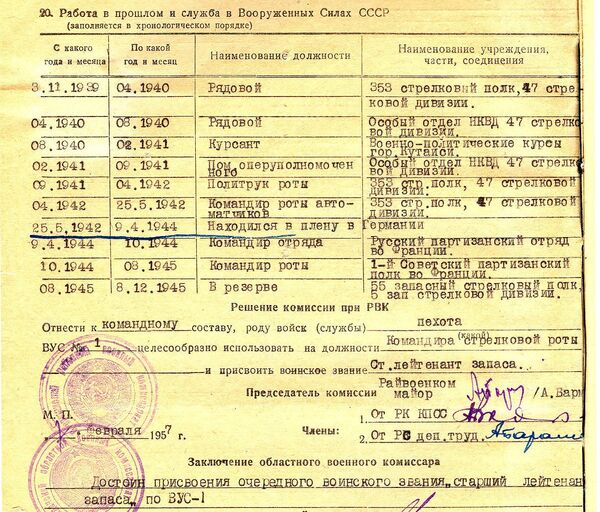 20. Работа в прошлом и служба в Вооруженных Силах СССР
(заполняется в хронологическом порядке)
С какого года и месяца По какой год и месяц Наименование должности Наименование учреждения, части, соединения
3.11.1939 04.1940 Рядовой 353 стрелковый полк, 47 стрел-
ковой дивизии.
04.1940 08.1940 Рядовой Особый отдел НКВД 47 стрелко
вой дивизии.
08.1940 02.1941 Курсант Военно-политические курсы
гор.Кутаиси.
02.1941 09.1941 Пом.оперуполномочен Особый отдел НКВД 47 стрелко
ного вой дивизии.
09.1941 04.1942 Политрук роты 353 стр.полк, 47 стрелковой
дивизии.
04.1942 25.5.1942 Командир роты авто- 353 стр.полк. 47 стрелковой
матчиков дивизии.
25.5.1942 9.4.1944 Находился в плену в Германии
9.4.1944 10.1944 Командир отряда Русский партизанский отряд
во Франции.
10.1944 08.1945 Командир роты 1-й Советский партизанский
полк во Франции.
08.1945 8.12.1945 В резерве 55 запасный стрелковый полк,
5 зап стрелковой дивизии.
Решение комиссии при РВК
Отнести к командному составу, роду войск (службы) пехота
(какой)
ВУС № 1 целесообразно использовать на должности Командира стрелковой роты
и присвоить воинское звание Ст.лейтенант запаса.
Райвоенком
Председатель комиссии майор /А.Варм
М. П. 1. От РК КПСС
февраля 1957 г. Члены:
2. От РС деп.труд.
Заключение областного военного комиссара
Достоин присвоения очередного воинского звания „старший лейтенан
запаса„ по ВУС-1